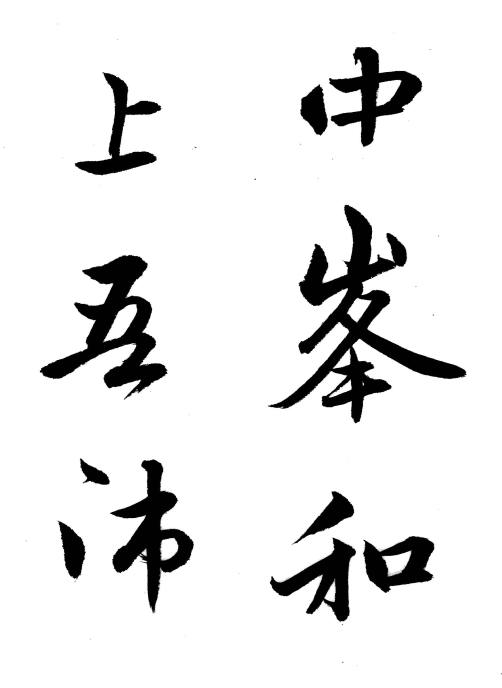 中峯和
上吾沛